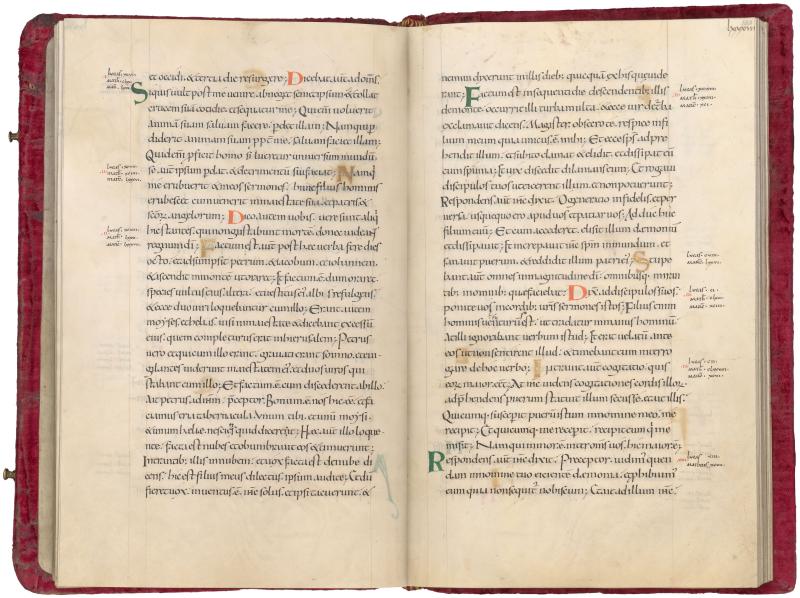 et occidi. & tercia die resurgere; Dicebat aut ad oms.
Siquis uult post me uenire abneget semetipsum & tollat
crucem sua cotidie et sequatur me; Qui enim uoluerit
animā suam saluam facere pdet illam; Nam qui pdi
derit animam suam pp me saluam faciet illam;
Quid enim pficit homo si lucretur uniuersum mundū
se aut ipsum pdat. & detrimentū sui faciat; Nam q
me erubuerit & meos sermones. hunc filius hominis
erubescet cum uenerit in maiestate sua & patris &
scōr angelorum; Dico autem uobis. uere sunt aliq
hic stantes. qui non gustabunt mortē donec uideant
regnum di; Factum est aut post haec uerba fere dies
octo. et adsumpsit petrum. & iacobum. et iohannem.
& ascendit in monte ut oraret; Et factum ē dum oraret
species uultus eius altera. et uestitus ei albus refulgens;
& ecce duo uiri loquebantur cum illo; Erant autem
moyses et helias. uisi in maiestate & dicebant excessū
eius. quem completurus erat in hierusalem; Petrus
uero et qui cum illo erant. grauati erant somno. et eui
gilantes uiderunt maiestatem ei. et duos uiros qui
stabant cum illo; Et factum ē cum discederent ab illo.
ait petrus ad ihm. preceptor. Bonum ē nos hic eē. et fa
ciamus tria tabernacula. Unum tibi. et unū moysi.
& unum heliae. nesciens quid diceret; Haec aut illo loque
nte. facta est nubes et obumbrauit eos & timuerunt;
Intrantib; illis in nubem. et uox facta est de nube di
cens. hic est filius meus dilectus. ipsum audite; Et dū
fieret uox. inuentus ē ihs solus. et ipsi tacuerunt. &
nemini dixerunt in illis dieb; quicquā ex his quę uide
rant; Factum est in sequenti die descendentib; illis
de monte. occurrit illi turba multa. & ecce uir de turba
exclamauit dicens. Magister obsecro te. respice in fili
um meum quia unicus ē mihi; Et ecce sps adpre
hendit illum. et subito clamat & elidit. et dissipat eū
cum spuma; Et uix discedit dilanians eum; Et rogaui
discipulos tuos ut eicerent illum. et non potuerunt;
Respondens aut ihs dixit. O generatio infidelis. et per
uersa. usquequo ero apud uos et patiar uos; Adduc huc
filium tuū; Et cum accederet. elisit illum demoniū
et dissipauit; Et increpauit ihs spm inmundum. et
sanauit puerum. & reddidit illum patri ei; Stupe
bant aut omnes in magnitudine di. omnibusq; miran
tib; in omnib; quae faciebat; Dixit ad discipulos suos.
ponite uos in cordib; uris sermones istos; Filius enim
hominis futurū est ut tradatur in manus hominū;
At illi ignorabant uerbum istud; Et erat uelatū ante
eos ut non sentirent illud. & timebant eum interro
gare de hoc uerbo; Intrauit aut cogitatio. quis
eor maior eēt; At ihs uidens cogitationes cordis illor
adphendens puerum. statuit illum secus se. et ait illis.
Quicumq; susceperit puerū istum in nomine meo. me
recipit; Et quicumq; me receperit. recipit eum qui me
misit; Nam qui minor ē inter oms uos. hic maior ē;
Respondens aut iohs dixit. Preceptor. uidim quen
dam in nomine tuo eicientē demonia. et phibuim
eum quia non sequitur nobiscum; Et ait ad illum ihs.